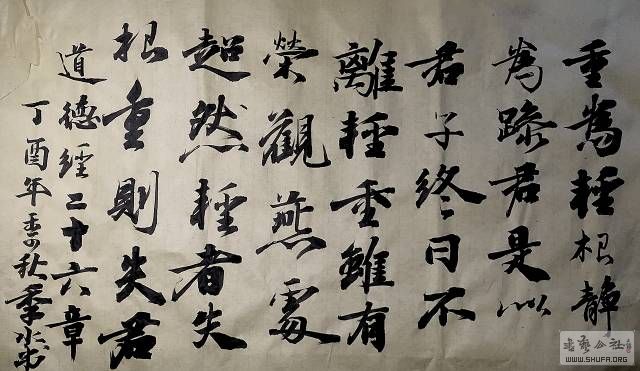 重為輕根靜
為躁君是以
君子終日不
離輕重雖有
榮觀燕處
超然輕者失
根重則失君
道德經二十六章
丁酉年季秋
公社
WWW.SHUFA.ORG